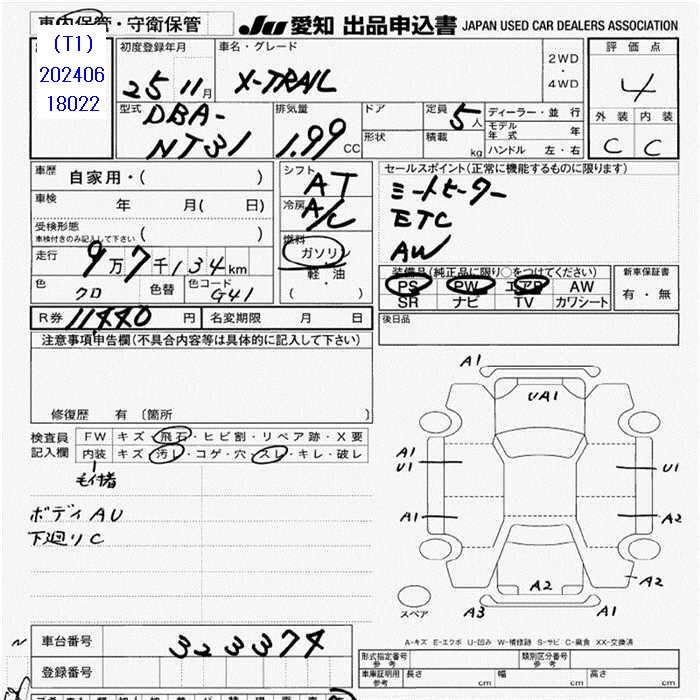 車内保管・守衛保管
JU 愛知 出品申込書 JAPAN USED CAR DEALERS ASSOCIATION
(T1)
202406
18022
初度登録年月
25 11月
車名・グレード
X-TRAIL
2WD
・
4WD
評価点
4
外装 内装
C C
型式
DBA-
NT31
排気量
1.99 CC
ドア
形状
定員 5人
積載 kg
ディーラー・並行
モデル年式 年
ハンドル 左・右
車歴 自家用・( )
車検 年 月( 日)
受検形態
車検付きのみ記入して下さい ( )
走行 9万7千134km
色 クロ 色替 色コード G41
シフト AT
冷房 A/C
燃料
ガソリン
軽・油
( )
セールスポイント(正常に機能するものに限ります)
ミートヒーター
ETC
AW
装備品(純正品に限り○をつけてください)
PS PW エアB AW
SR ナビ TV カワシート
新車保証書
有・無
後日品
R券 11440 円 名変期限 月 日
注意事項申告欄(不具合内容等は具体的に記入して下さい)
修復歴 有 〔箇所 〕
検査員
記入欄
FW キズ・飛石・ヒビ割・リペア跡・X要
内装 キズ・汚レ・コゲ・穴・スレ・キレ・破レ
毛付着
ボディAU
下廻りC
A1
UA1
A1
U1
U1
A1
A2
A2
A2
A3
A1
スペア
A-キズ E-エクボ U-凹み W-補修跡 S-サビ C-腐食 XX-交換済
車台番号 323374
登録番号
型式指定番号
参考
類別区分番号
参考
車庫証明用
参考
長さ cm 幅 cm 高さ cm